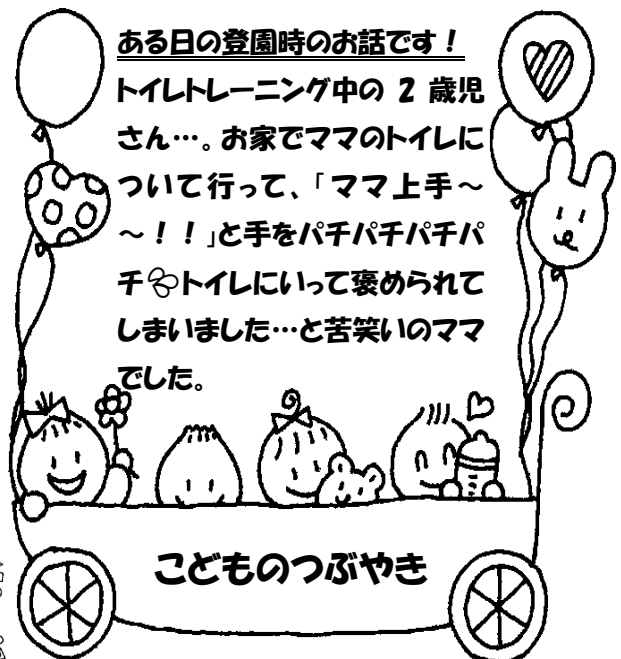 ある日の登園時のお話です！
トイレトレーニング中の 2 歳児
さん…。お家でママのトイレに
ついて行って、「ママ上手～
～！！」と手をパチパチパチパ
チトイレにいって褒められて
しまいました…と苦笑いのママ
でした。
こどものつぶやき